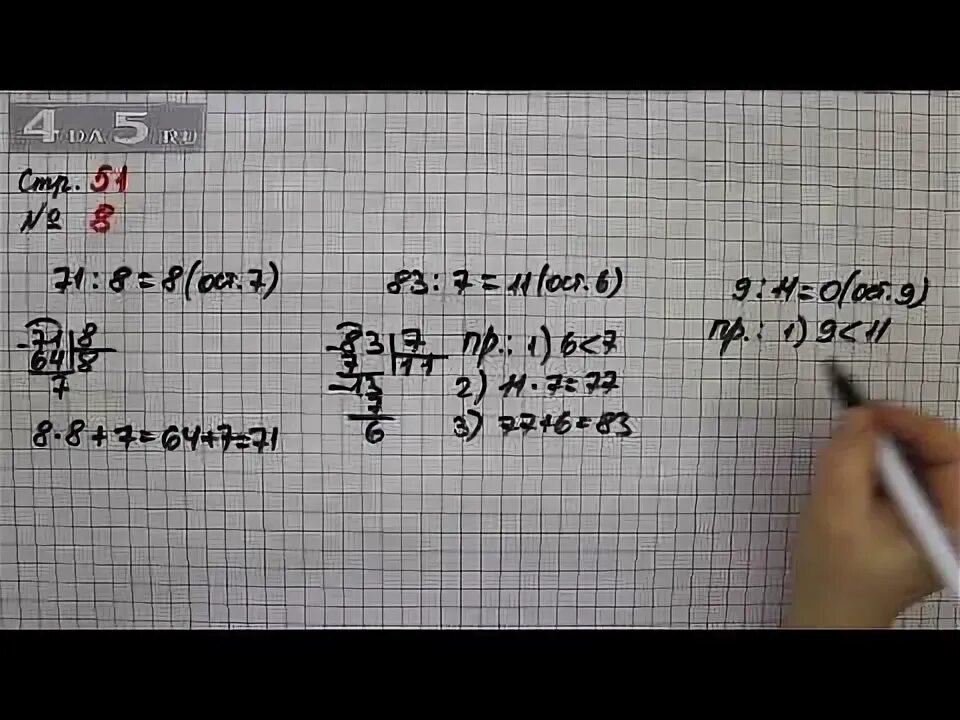 4 DA 5 RU
Стр. 51
№ 8
71 : 8 = 8 (ост. 7)
- 71 | 8
64 | 8
7
8 · 8 + 7 = 64 + 7 = 71
83 : 7 = 11 (ост. 6)
- 83 | 7
7 | 11
- 13
7
6
пр.: 1) 6 < 7
2) 11 · 7 = 77
3) 77 + 6 = 83
9 : 11 = 0 (ост. 9)
пр.: 1) 9 < 11